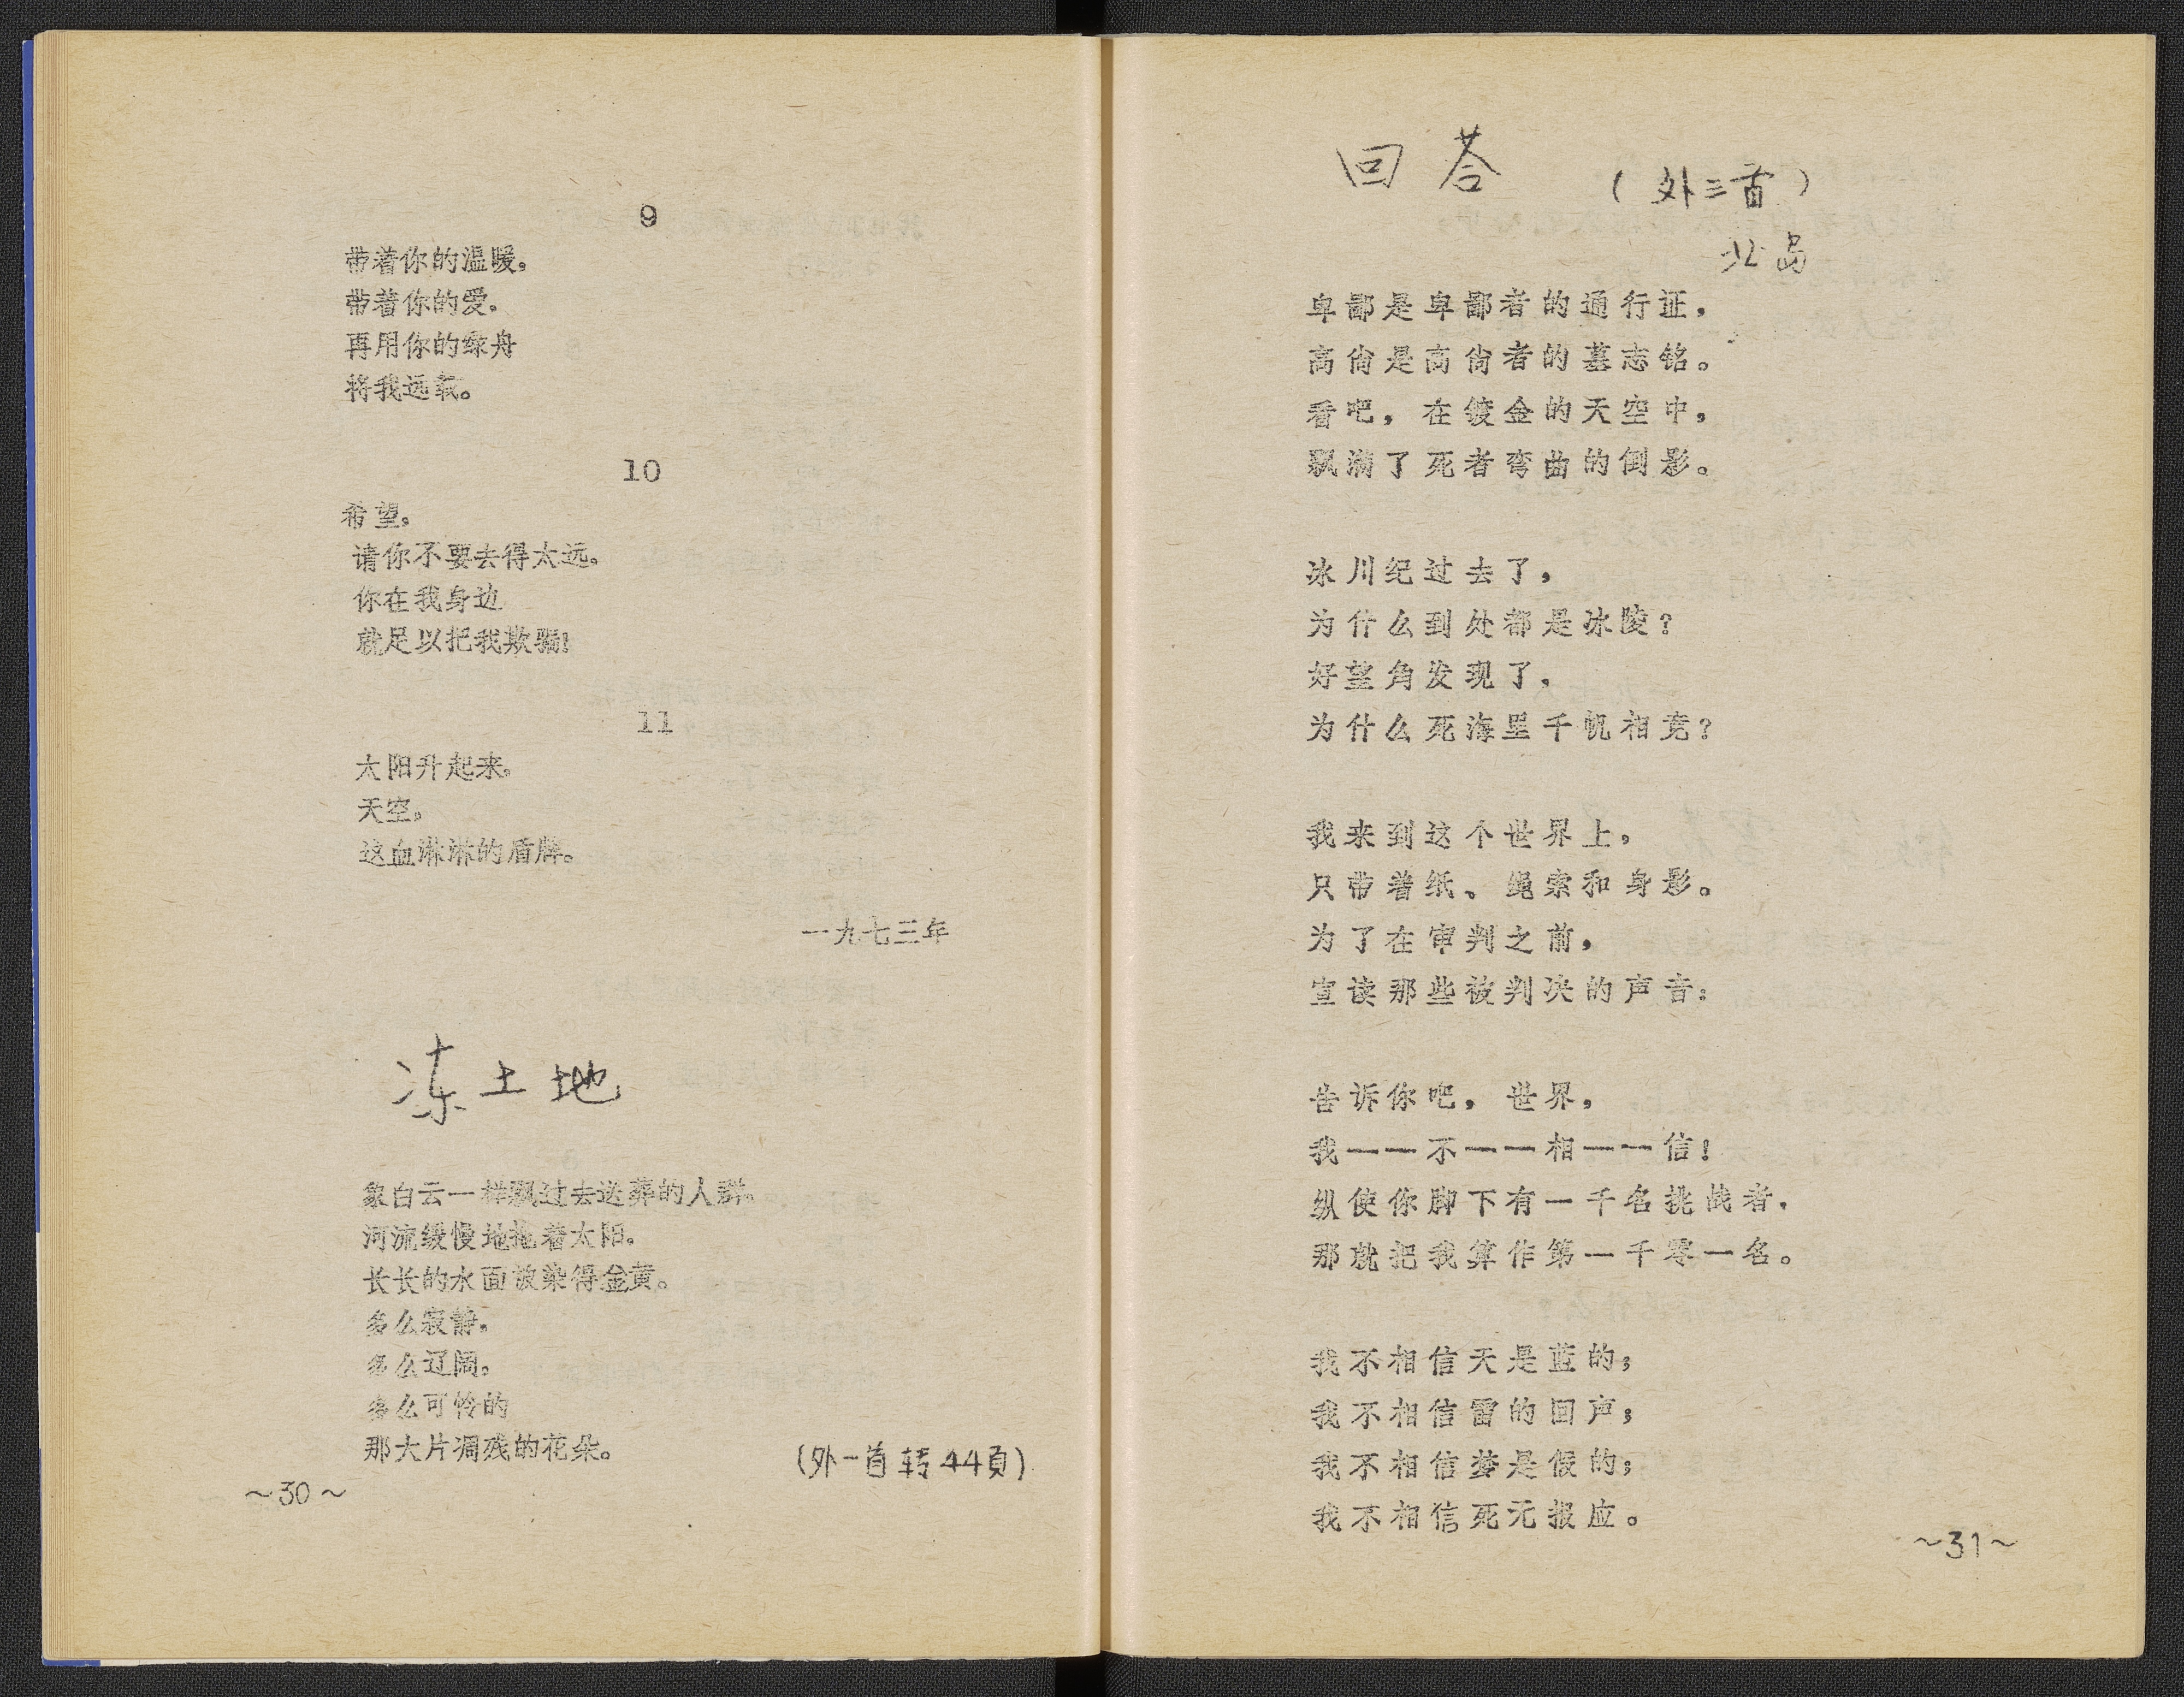 9
带着你的温暖，
带着你的爱。
再用你的绿舟
将我远载。
10
希望，
请你不要去得太远。
你在我身边
就足以把我欺骗！
11
太阳升起来。
天空，
这血淋淋的盾牌。
一九七三年
冻土地
象白云一样飘过去送葬的人群。
河流缓慢地拖着太阳。
长长的水面被染得金黄。
多么寂静。
多么辽阔。
多么可怜的
那大片凋残的花朵。
（外一首转44頁）
～30～
回荅
（外三首）
北岛
卑鄙是卑鄙者的通行证，
高尚是高尚者的墓志铭。
看吧，在镀金的天空中，
飘满了死者弯曲的倒影。
冰川纪过去了，
为什么到处都是冰陵？
好望角发现了，
为什么死海里千帆相竞？
我来到这个世界上，
只带着纸、绳索和身影。
为了在审判之前，
宣读那些被判决的声音：
告诉你吧，世界，
我——不——相——信！
纵使你脚下有一千名挑战者，
那就把我算作第一千零一名。
我不相信天是蓝的；
我不相信雷的回声；
我不相信梦是假的；
我不相信死无报应。
～31～